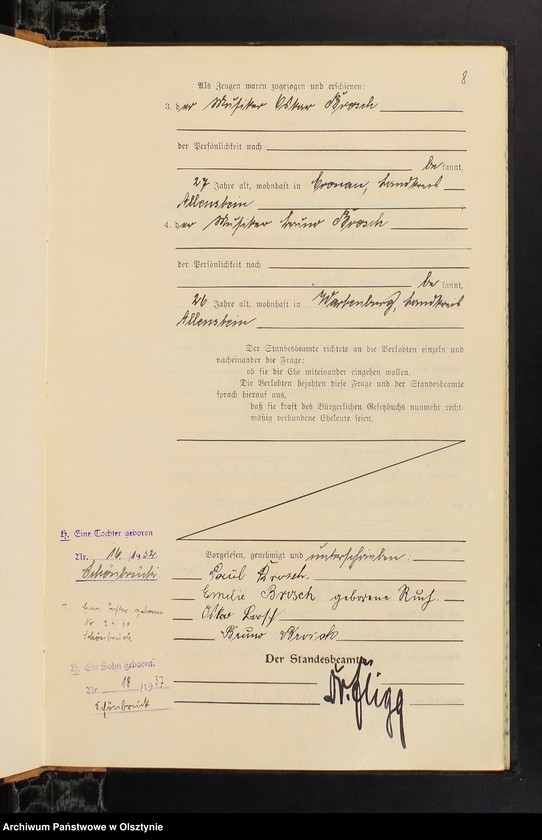 8
Als Zeugen waren zugezogen und erschienen:
3. der Musiker Oskar Brosch
der Persönlichkeit nach
be kannt,
27 Jahre alt, wohnhaft in Cronau, Landkreis
Allenstein
4. der Musiker Bruno Brosch
der Persönlichkeit nach
be kannt,
26 Jahre alt, wohnhaft in Wartenberg, Landkreis
Allenstein
Der Standesbeamte richtete an die Verlobten einzeln und
nacheinander die Frage:
ob sie die Ehe miteinander eingehen wollen.
Die Verlobten bejahten diese Frage und der Standesbeamte
sprach hierauf aus,
daß sie kraft des Bürgerlichen Gesetzbuchs nunmehr recht-
mäßig verbundene Eheleute seien.
H. Eine Tochter geboren
Nr. 16 /1932
Schönbrück
Eine Tochter geboren
Nr.
Schönbrück
H. Ein Sohn geboren:
Nr. 18 /1937
Schönbrück
Vorgelesen, genehmigt und unterschrieben:
Paul Brosch.
Emilie Brosch geborene Ruch.
Oskar Brosch
Bruno Brosch
Der Standesbeamte
Archiwum Państwowe w Olsztynie